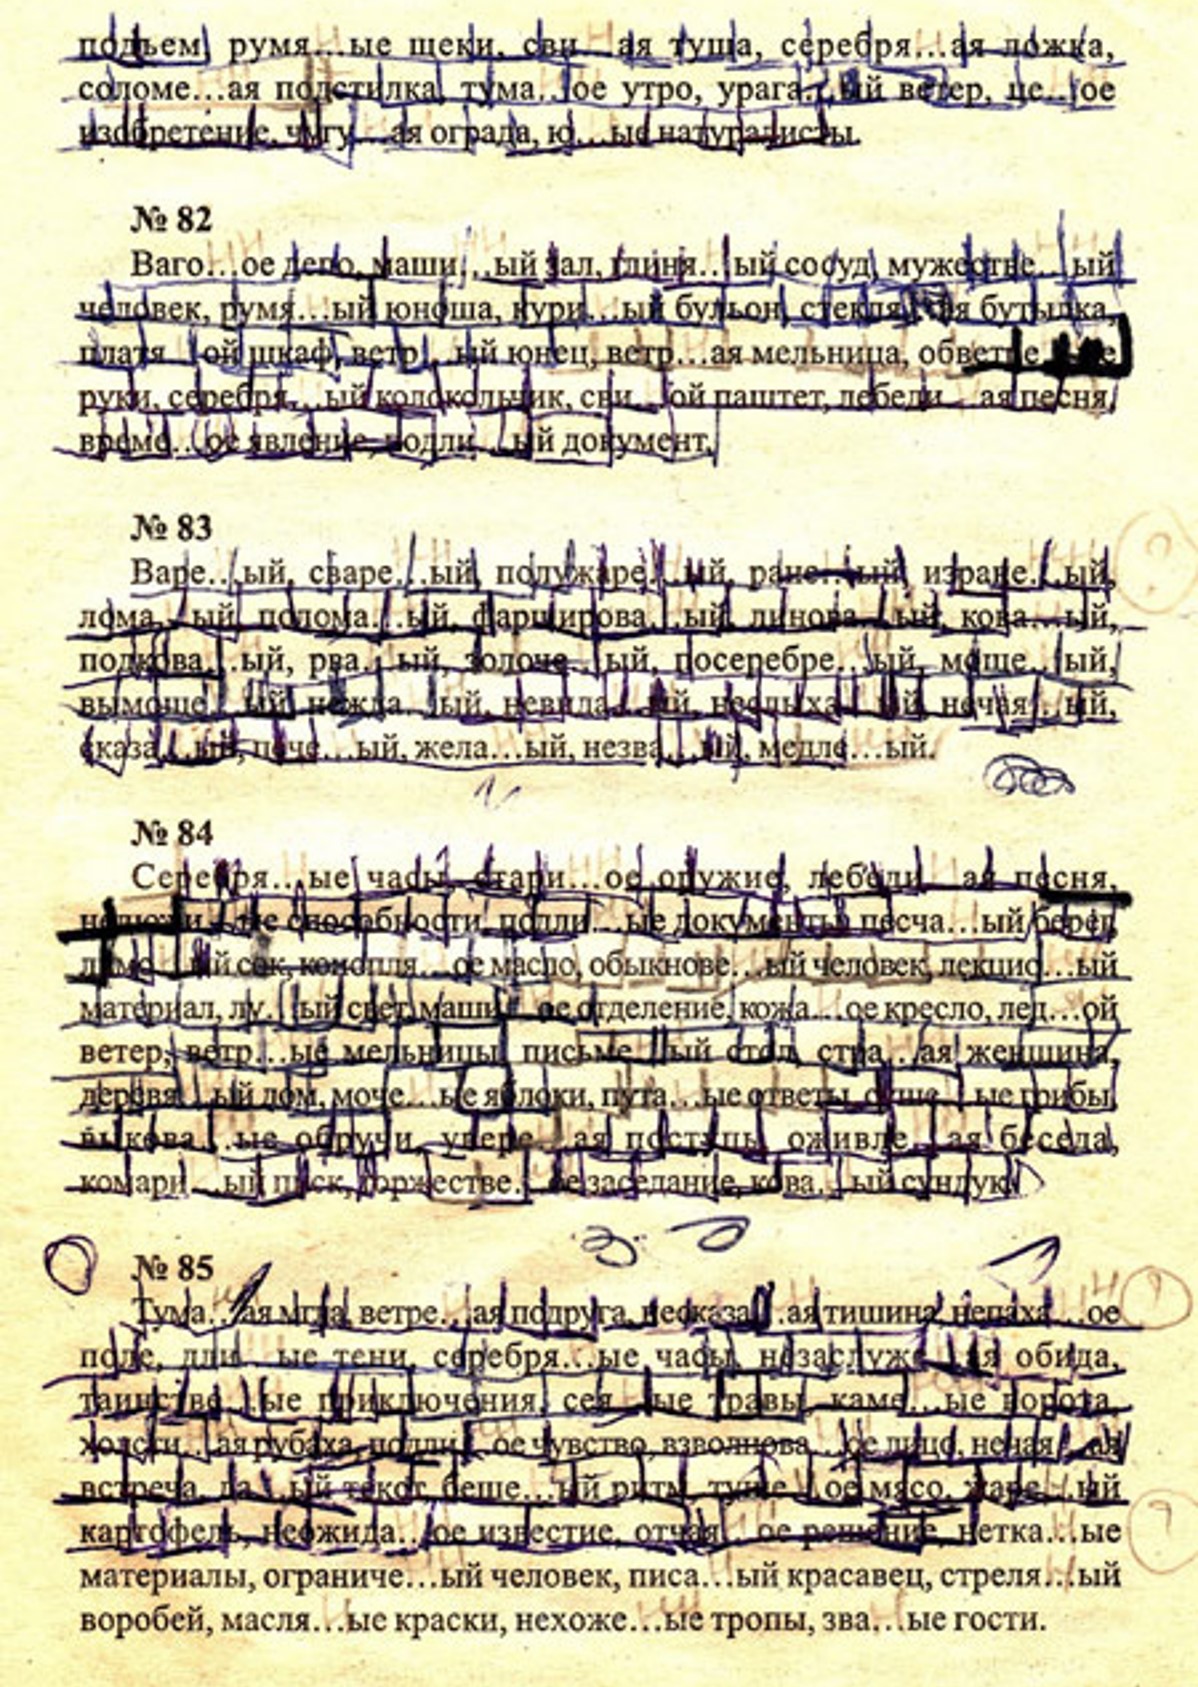 подъем, румя…ые щеки, сви…ая туша, серебря…ая ложка,
соломе…ая подстилка, тума…ое утро, урага…ый ветер, це…ое
изобретение, чугу…ая ограда, ю…ые натуралисты.
№ 82
Ваго…ое депо, маши…ый зал, глиня…ый сосуд, мужестве…ый
человек, румя…ый юноша, кури…ый бульон, стекля…ая бутылка,
платя…ой шкаф, ветр…ый юнец, ветр…ая мельница, обветре…ые
руки, серебря…ый колокольчик, сви…ой паштет, лебеди…ая песня,
време…ое явление, подли…ый документ.
№ 83
Варе…ый, сваре…ый, полужаре…ый, ране…ый, изране…ый,
лома…ый, полома…ый, фарширова…ый, линова…ый, кова…ый,
подкова…ый, рва…ый, золоче…ый, посеребре…ый, моще…ый,
вымоще…ый, нежда…ый, невида…ый, неслыха…ый, нечая…ый,
сказа…ый, пече…ый, жела…ый, незва…ый, медле…ый.
№ 84
Серебря…ые часы, стари…ое оружие, лебеди…ая песня,
недюжи…ые способности, подли…ые документы, песча…ый берег,
лимо…ый сок, конопля…ое масло, обыкнове…ый человек, лекцио…ый
материал, лу…ый свет, маши…ое отделение, кожа…ое кресло, лед…ой
ветер, ветр…ые мельницы, письме…ый стол, стра…ая женщина,
деревя…ый дом, моче…ые яблоки, пута…ые ответы, суше…ые грибы,
выкова…ые обручи, увере…ая поступь, оживле…ая беседа,
комари…ый писк, торжестве…ое заседание, кова…ый сундук.
№ 85
Тума…ая мгла, ветре…ая подруга, несказа…ая тишина, непаха…ое
поле, дли…ые тени, серебря…ые часы, незаслуже…ая обида,
таинстве…ые приключения, сея…ые травы, каме…ые ворота,
холсти…ая рубаха, подли…ое чувство, взволнова…ое лицо, нечая…ая
встреча, да…ый текст, беше…ый ритм, туше…ое мясо, жаре…ый
картофель, неожида…ое известие, отчая…ое решение, нетка…ые
материалы, ограниче…ый человек, писа…ый красавец, стреля…ый
воробей, масля…ые краски, нехоже…ые тропы, зва…ые гости.